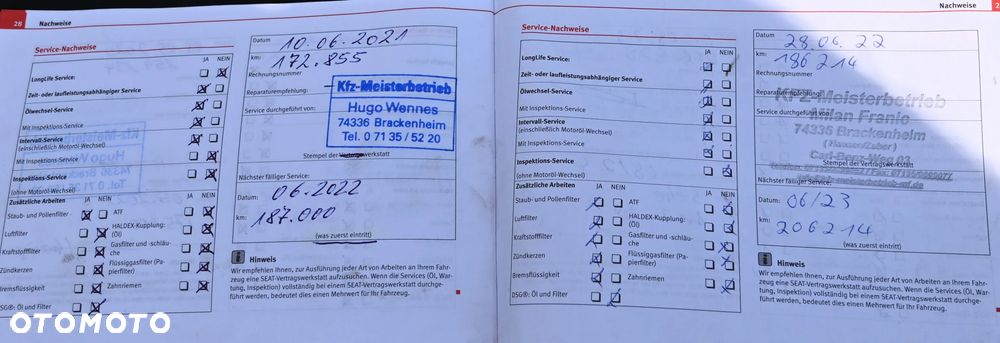 28 Nachweise
Service-Nachweise
JA NEIN
LongLife Service:
Zeit- oder laufleistungsabhängiger Service
Ölwechsel-Service
Mit Inspektions-Service
Intervall-Service
(einschließlich Motoröl-Wechsel)
Mit Inspektions-Service
Inspektions-Service
(ohne Motoröl-Wechsel)
Zusätzliche Arbeiten JA NEIN JA NEIN
Staub- und Pollenfilter ATF
Luftfilter HALDEX-Kupplung: (Öl)
Kraftstofffilter Gasfilter und -schläuche
Zündkerzen Flüssiggasfilter (Papierfilter)
Bremsflüssigkeit Zahnriemen
DSG®: Öl und Filter
Datum 10.06.2021
km: 172.855
Rechnungsnummer
Reparaturempfehlung:
Service durchgeführt von:
Kfz-Meisterbetrieb
Hugo Wennes
74336 Brackenheim
Tel. 0 71 35 / 52 20
Stempel der Vertragswerkstatt
Nächster fälliger Service:
Datum: 06.2022
km: 187.000
(was zuerst eintritt)
Hinweis
Wir empfehlen Ihnen, zur Ausführung jeder Art von Arbeiten an Ihrem Fahr-
zeug eine SEAT-Vertragswerkstatt aufzusuchen. Wenn die Services (Öl, War-
tung, Inspektion) vollständig bei einem SEAT-Vertragswerkstatt durchge-
führt werden, bedeutet dies einen Mehrwert für Ihr Fahrzeug.
OTOMOTO
Nachweise
Service-Nachweise
JA NEIN
LongLife Service:
Zeit- oder laufleistungsabhängiger Service
Ölwechsel-Service
Mit Inspektions-Service
Intervall-Service
(einschließlich Motoröl-Wechsel)
Mit Inspektions-Service
Inspektions-Service
(ohne Motoröl-Wechsel)
Zusätzliche Arbeiten JA NEIN JA NEIN
Staub- und Pollenfilter ATF
Luftfilter HALDEX-Kupplung: (Öl)
Kraftstofffilter Gasfilter und -schläuche
Zündkerzen Flüssiggasfilter (Papierfilter)
Bremsflüssigkeit Zahnriemen
DSG®: Öl und Filter
Datum 28.06.22
km: 186214
Rechnungsnummer
Reparaturempfehlung:
Service durchgeführt von:
KFZ-Meisterbetrieb
Milan Franic
74336 Brackenheim
(Hausen/Zaber)
Carl-Benz-Weg 03
Stempel der Vertragswerkstatt
Nächster fälliger Service:
Datum: 06/23
km: 206214
(was zuerst eintritt)
Hinweis
Wir empfehlen Ihnen, zur Ausführung jeder Art von Arbeiten an Ihrem Fahr-
zeug eine SEAT-Vertragswerkstatt aufzusuchen. Wenn die Services (Öl, War-
tung, Inspektion) vollständig bei einem SEAT-Vertragswerkstatt durchge-
führt werden, bedeutet dies einen Mehrwert für Ihr Fahrzeug.